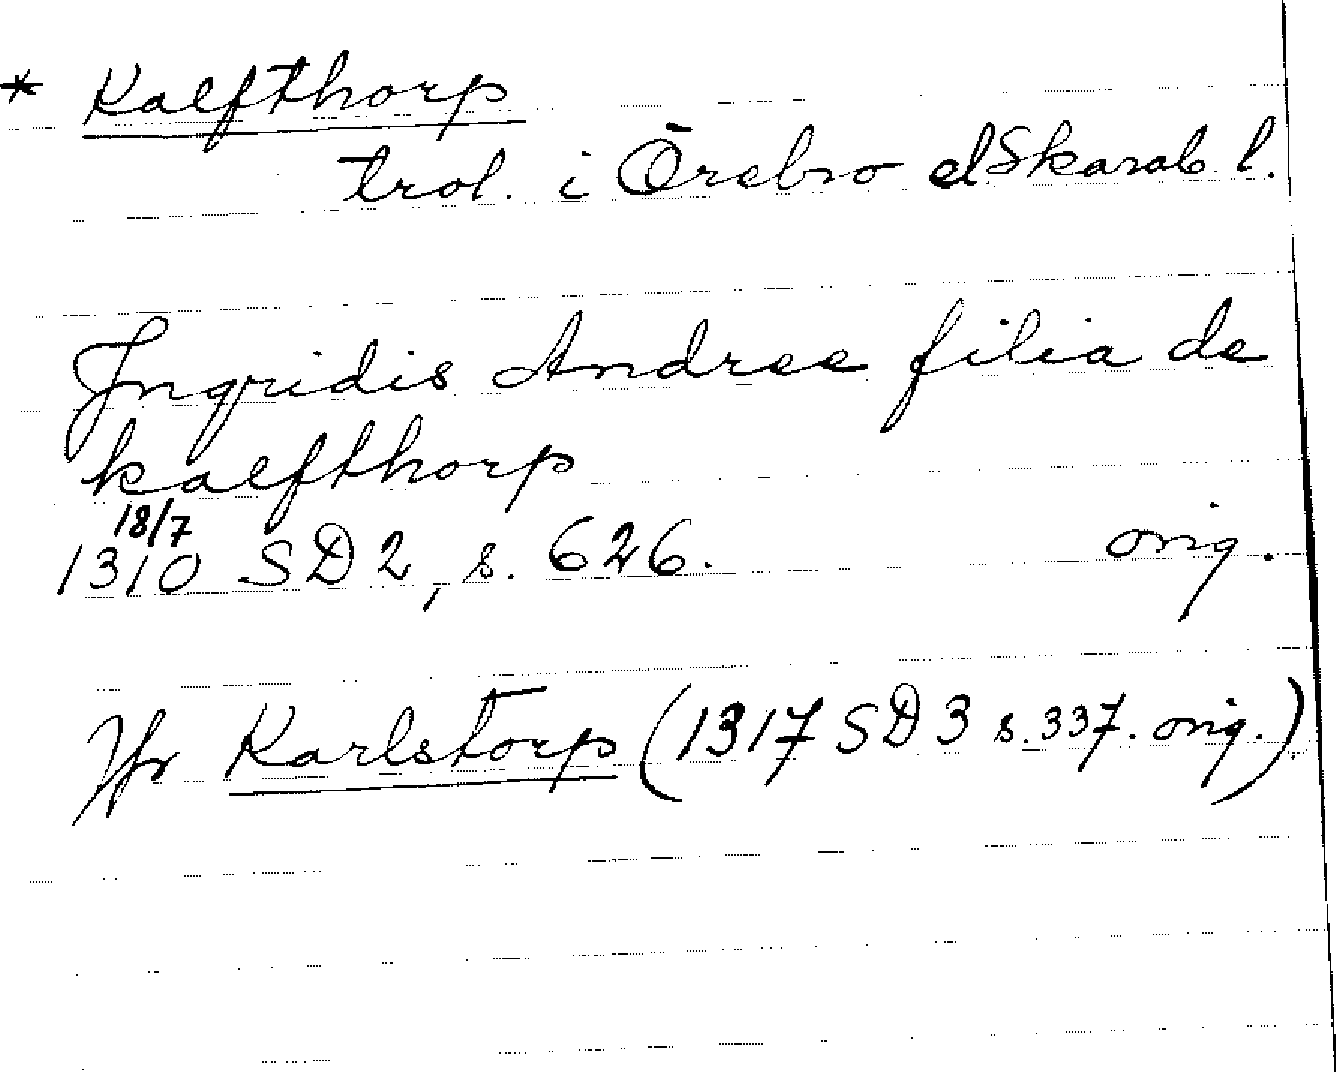 * Kalfthorp
trol. i Örebro el Skarab l.
Ingridis Andree filia de
kalfthorp
18/7
1310 SD 2, s. 626. orig.
Jfr Karlstorp (1317 SD 3 s. 337. orig.)